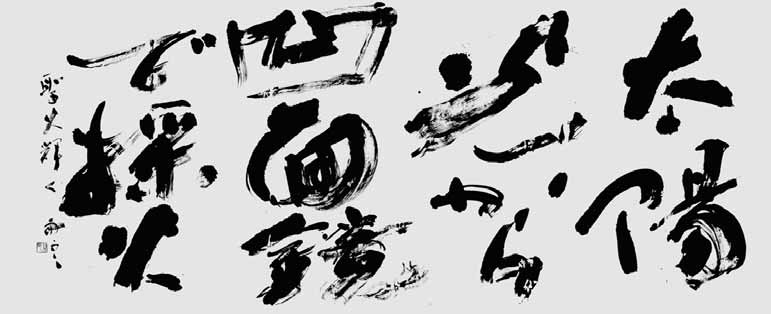 太陽
光から
凹面鏡
で採火
聖火輝く